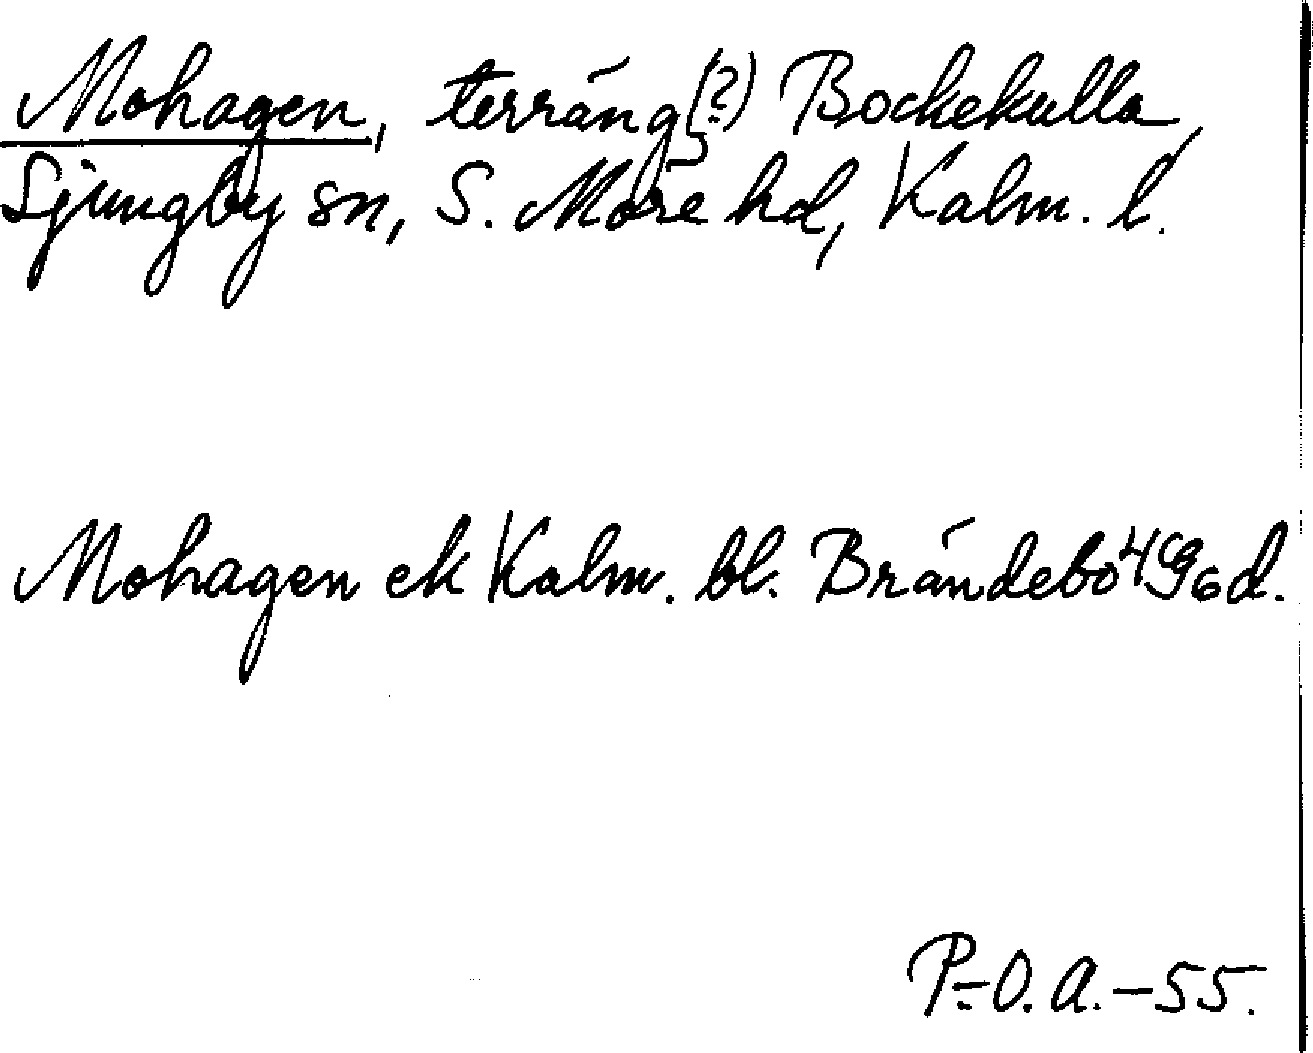 Mohagen, terräng(?) Bockekulla,
Ljungby sn, S. Möre hd, Kalm. l.
Mohagen ek Kalm. bl. Brändebo 4G6d.
P.-O. A. -55.